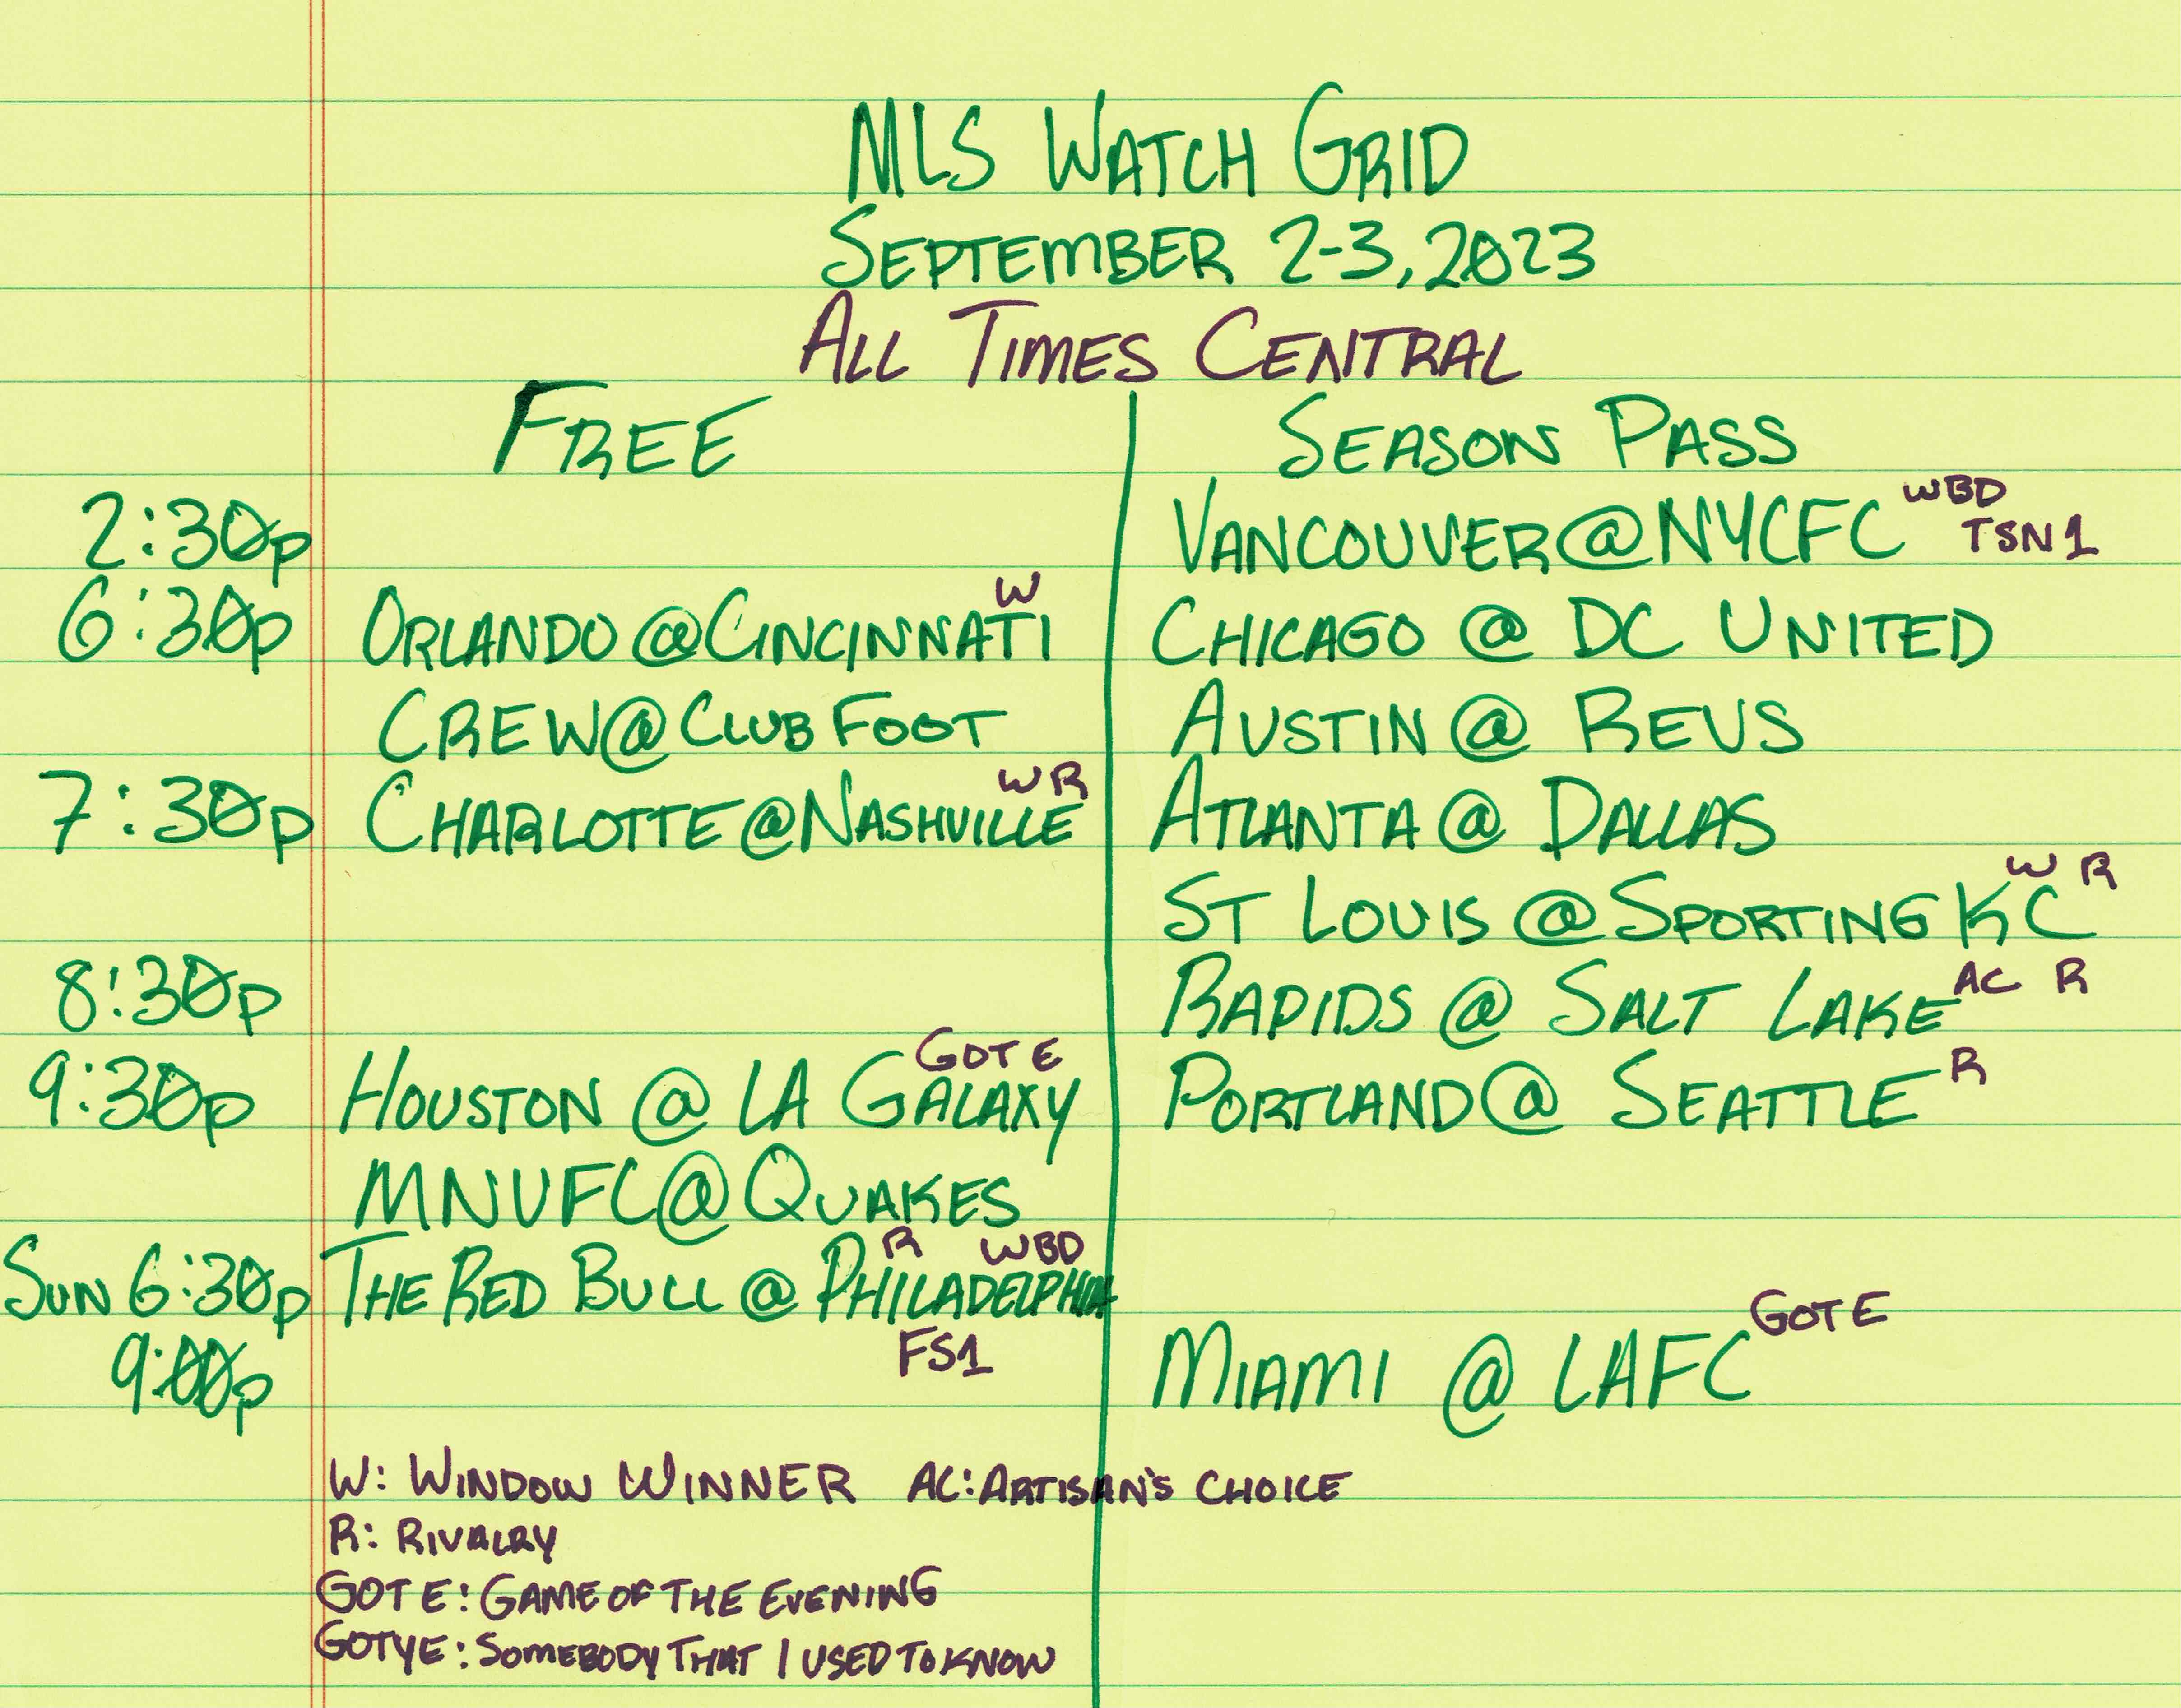 MLS WATCH GRID
SEPTEMBER 2-3, 2023
ALL TIMES CENTRAL
FREE SEASON PASS
2:30p VANCOUVER @ NYCFC WBD TSN1
6:30p ORLANDO @ CINCINNATI W CHICAGO @ DC UNITED
CREW @ CLUB FOOT AUSTIN @ REVS
7:30p CHARLOTTE @ NASHVILLE W R ATLANTA @ DALLAS
ST LOUIS @ SPORTING KC W R
8:30p RAPIDS @ SALT LAKE AC R
9:30p HOUSTON @ LA GALAXY GOTE PORTLAND @ SEATTLE R
MNUFC @ QUAKES
SUN 6:30p THE RED BULL @ PHILADELPHIA R WBD FS1
9:00p MIAMI @ LAFC GOTE
W: WINDOW WINNER AC: ARTISAN'S CHOICE
R: RIVALRY
GOTE: GAME OF THE EVENING
GOTYE: SOMEBODY THAT I USED TO KNOW